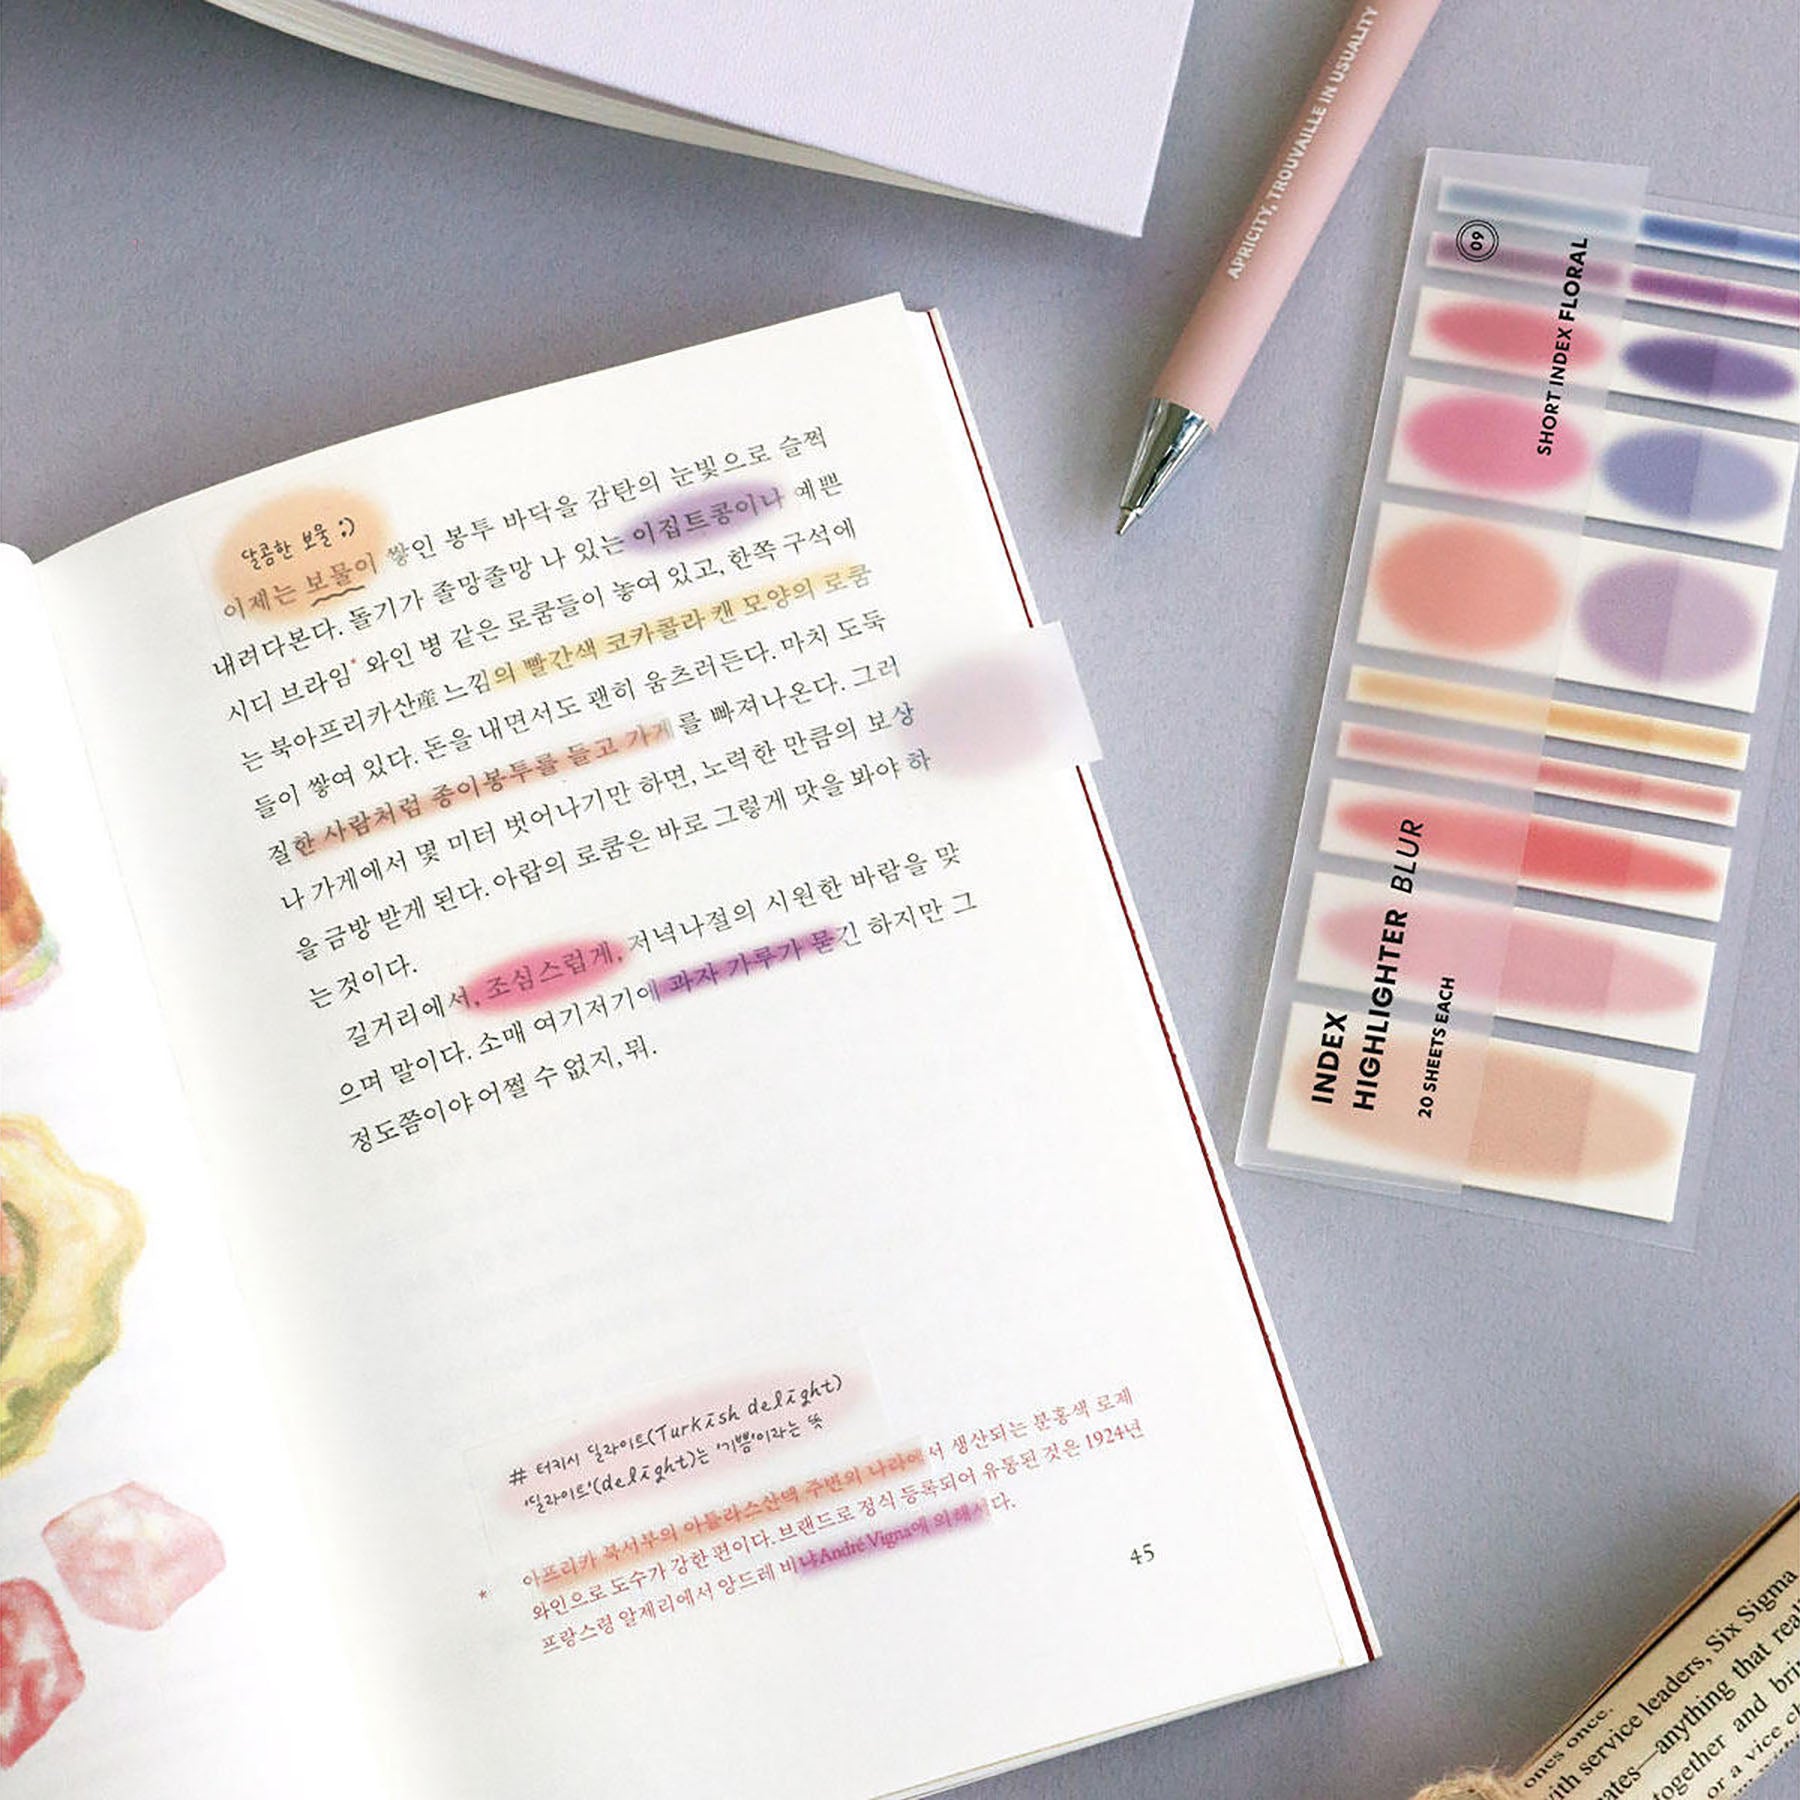 달콤한 보물 ;)
이제는 보물이 쌓인 봉투 바닥을 감탄의 눈빛으로 슬쩍
내려다본다. 돌기가 졸망졸망 나 있는 이집트콩이나 예쁜
시디 브라임* 와인 병 같은 로쿰들이 놓여 있고, 한쪽 구석에
는 북아프리카산産 느낌의 빨간색 코카콜라 캔 모양의 로쿰
들이 쌓여 있다. 돈을 내면서도 괜히 움츠러든다. 마치 도둑
질한 사람처럼 종이봉투를 들고 가게를 빠져나온다. 그러
나 가게에서 몇 미터 벗어나기만 하면, 노력한 만큼의 보상
을 금방 받게 된다. 아랍의 로쿰은 바로 그렇게 맛을 봐야 하
는 것이다.
길거리에서, 조심스럽게, 저녁나절의 시원한 바람을 맞
으며 말이다. 소매 여기저기에 과자 가루가 묻긴 하지만 그
정도쯤이야 어쩔 수 없지, 뭐.
# 터키시 딜라이트(Turkish delight)
'딜라이트'(delight)는 '기쁨'이라는 뜻
* 아프리카 북서부의 아틀라스산맥 주변의 나라에서 생산되는 분홍색 로제
와인으로 도수가 강한 편이다. 브랜드로 정식 등록되어 유통된 것은 1924년
프랑스령 알제리에서 앙드레 비냐André Vigna에 의해서다.
45
APRICITY, TROUVAILLE IN USUALITY
09
SHORT INDEX FLORAL
INDEX
HIGHLIGHTER BLUR
20 SHEETS EACH
ones once.
with service leaders, Six Sigma
ates—anything that real
together and bri
or a vice ch